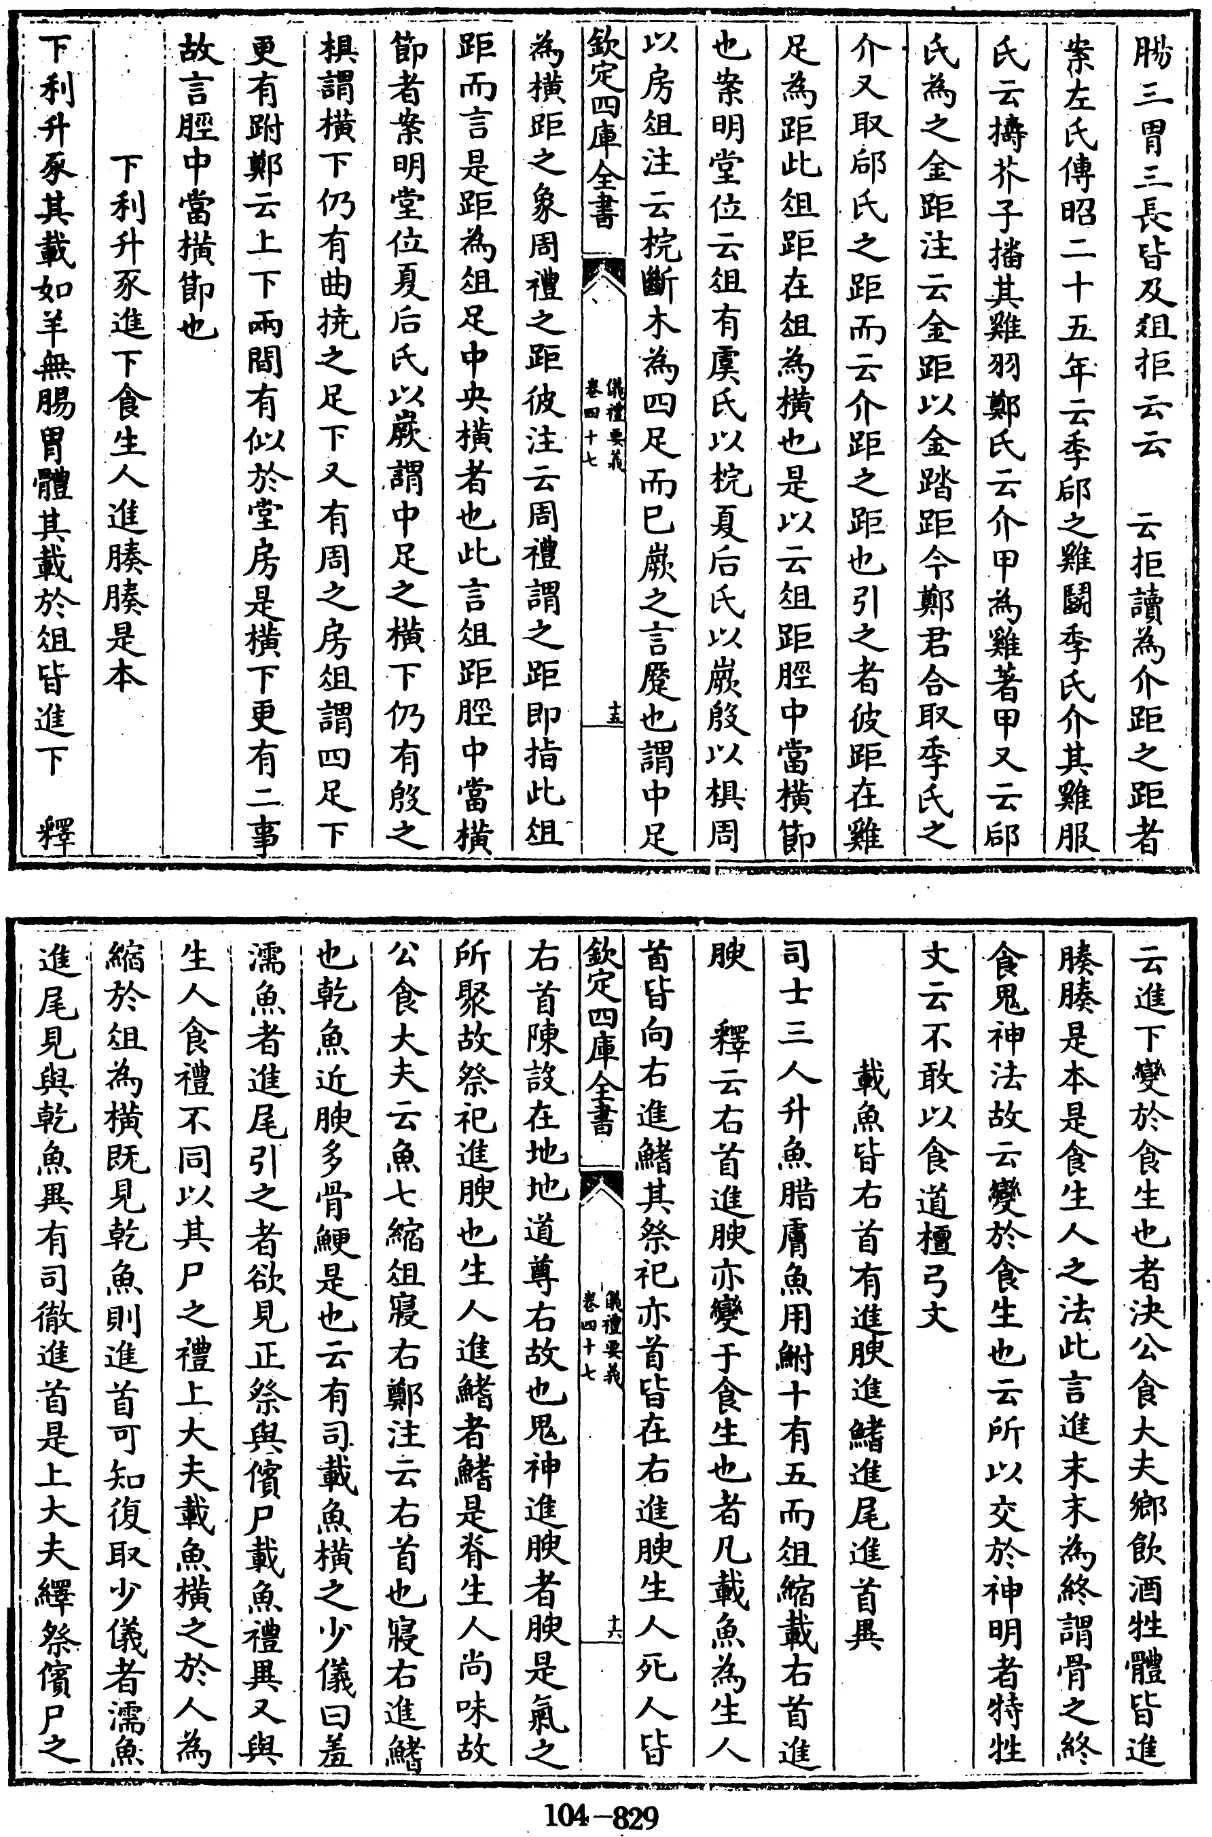 腸三胃三長皆及俎拒云云　云拒讀為介距之距者
案左氏傳昭二十五年云季郈之雞鬭季氏介其雞服
氏云擣芥子播其雞羽鄭氏云介甲為雞著甲又云郈
氏為之金距注云金距以金踏距今鄭君合取季氏之
介又取郈氏之距而云介距之距也引之者彼距在雞
足為距此俎距在俎為橫也是以云俎距脛中當橫節
也案明堂位云俎有虞氏以梡夏后氏以嶡殷以椇周
以房俎注云梡斷木為四足而已嶡之言蹷也謂中足
欽定四庫全書
儀禮要義
卷四十七
十五
為橫距之象周禮之距彼注云周禮謂之距即指此俎
距而言是距為俎足中央橫者也此言俎距脛中當橫
節者案明堂位夏后氏以嶡謂中足之橫下仍有殷之
椇謂橫下仍有曲撓之足下又有周之房俎謂四足下
更有跗鄭云上下兩間有似於堂房是橫下更有二事
故言脛中當橫節也
下利升豕進下食生人進腠腠是本
下利升豕其載如羊無腸胃體其載於俎皆進下　釋
云進下變於食生也者決公食大夫鄉飲酒牲體皆進
腠腠是本是食生人之法此言進末末為終謂骨之終
食鬼神法故云變於食生也云所以交於神明者特牲
文云不敢以食道檀弓文
載魚皆右首有進腴進鰭進尾進首異
司士三人升魚腊膚魚用鮒十有五而俎縮載右首進
腴　釋云右首進腴亦變于食生也者凡載魚為生人
首皆向右進鰭其祭祀亦首皆在右進腴生人死人皆
欽定四庫全書
儀禮要義
卷四十七
十六
右首陳設在地地道尊右故也鬼神進腴者腴是氣之
所聚故祭祀進腴也生人進鰭者鰭是脊生人尚味故
公食大夫云魚七縮俎寢右鄭注云右首也寢右進鰭
也乾魚近腴多骨鯁是也云有司載魚橫之少儀曰羞
濡魚者進尾引之者欲見正祭與儐尸載魚禮異又與
生人食禮不同以其尸之禮上大夫載魚橫之於人為
縮於俎為橫既見乾魚則進首可知復取少儀者濡魚
進尾見與乾魚異有司徹進首是上大夫繹祭儐尸之
104-829